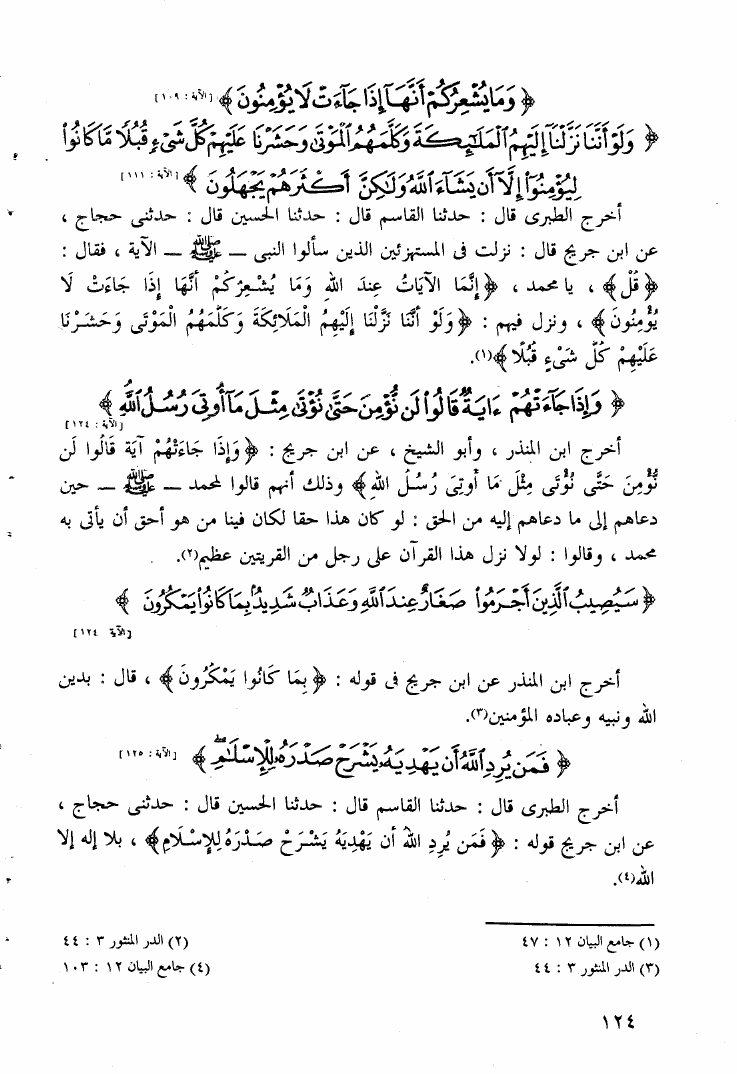 ﴿ وَمَا يُشْعِرُكُمْ أَنَّهَآ إِذَا جَآءَتْ لَا يُؤْمِنُونَ ﴾ [الآية : ١٠٩]
﴿ وَلَوْ أَنَّنَا نَزَّلْنَآ إِلَيْهِمُ ٱلْمَلَٰٓئِكَةَ وَكَلَّمَهُمُ ٱلْمَوْتَىٰ وَحَشَرْنَا عَلَيْهِمْ كُلَّ شَىْءٍ قُبُلًا مَّا كَانُوا۟
لِيُؤْمِنُوٓا۟ إِلَّآ أَن يَشَآءَ ٱللَّهُ وَلَٰكِنَّ أَكْثَرَهُمْ يَجْهَلُونَ ﴾ [الآية : ١١١]
أخرج الطبرى قال : حدثنا القاسم قال : حدثنا الحسين قال : حدثنى حجاج ،
عن ابن جريج قال : نزلت فى المستهزئين الذين سألوا النبى – ﷺ – الآية ، فقال :
﴿قُلْ﴾ ، يا محمد ، ﴿إِنَّمَا الآيَاتُ عِندَ اللهِ وَمَا يُشْعِرُكُمْ أَنَّهَا إِذَا جَاءَتْ لَا
يُؤْمِنُونَ﴾ ، ونزل فيهم : ﴿وَلَوْ أَنَّنَا نَزَّلْنَا إِلَيْهِمُ الْمَلَائِكَةَ وَكَلَّمَهُمُ الْمَوْتَى وَحَشَرْنَا
عَلَيْهِمْ كُلَّ شَىْءٍ قُبُلًا ﴾(١).
﴿ وَإِذَا جَآءَتْهُمْ ءَايَةٌ قَالُوا۟ لَن نُّؤْمِنَ حَتَّىٰ نُؤْتَىٰ مِثْلَ مَآ أُوتِىَ رُسُلُ ٱللَّهِ ﴾
[الآية : ١٢٤]
أخرج ابن المنذر ، وأبو الشيخ ، عن ابن جريج : ﴿وَإِذَا جَاءَتْهُمْ آيَة قَالُوا لَن
نُّؤْمِنَ حَتَّى نُؤْتَى مِثْلَ مَا أُوتِىَ رُسُلُ اللهِ﴾ وذلك أنهم قالوا لمحمد – ﷺ – حين
دعاهم إلى ما دعاهم إليه من الحق : لو كان هذا حقا لكان فينا من هو أحق أن يأتى به
محمد ، وقالوا : لولا نزل هذا القرآن على رجل من القريتين عظيم(٢).
﴿ سَيُصِيبُ ٱلَّذِينَ أَجْرَمُوا۟ صَغَارٌ عِندَ ٱللَّهِ وَعَذَابٌ شَدِيدٌۢ بِمَا كَانُوا۟ يَمْكُرُونَ ﴾
[الآية ١٢٤]
أخرج ابن المنذر عن ابن جريج فى قوله : ﴿ بِمَا كَانُوا يَمْكُرُونَ ﴾ ، قال : بدين
الله ونبيه وعباده المؤمنين(٣).
﴿ فَمَن يُرِدِ ٱللَّهُ أَن يَهْدِيَهُۥ يَشْرَحْ صَدْرَهُۥ لِلْإِسْلَٰمِ ۖ ﴾ [الآية : ١٢٥]
أخرج الطبرى قال : حدثنا القاسم قال : حدثنا الحسين قال : حدثنى حجاج ،
عن ابن جريج قوله : ﴿ فَمَن يُرِدِ اللهُ أن يَهْدِيَهُ يَشْرَحْ صَدْرَهُ لِلإِسْلَامِ﴾ ، بلا إله إلا
الله(٤).
(١) جامع البيان ١٢ : ٤٧
(٢) الدر المنثور ٣ : ٤٤
(٣) الدر المنثور ٣ : ٤٤
(٤) جامع البيان ١٢ : ١٠٣
١٢٤